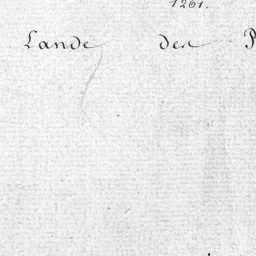 1261.
Lande des P